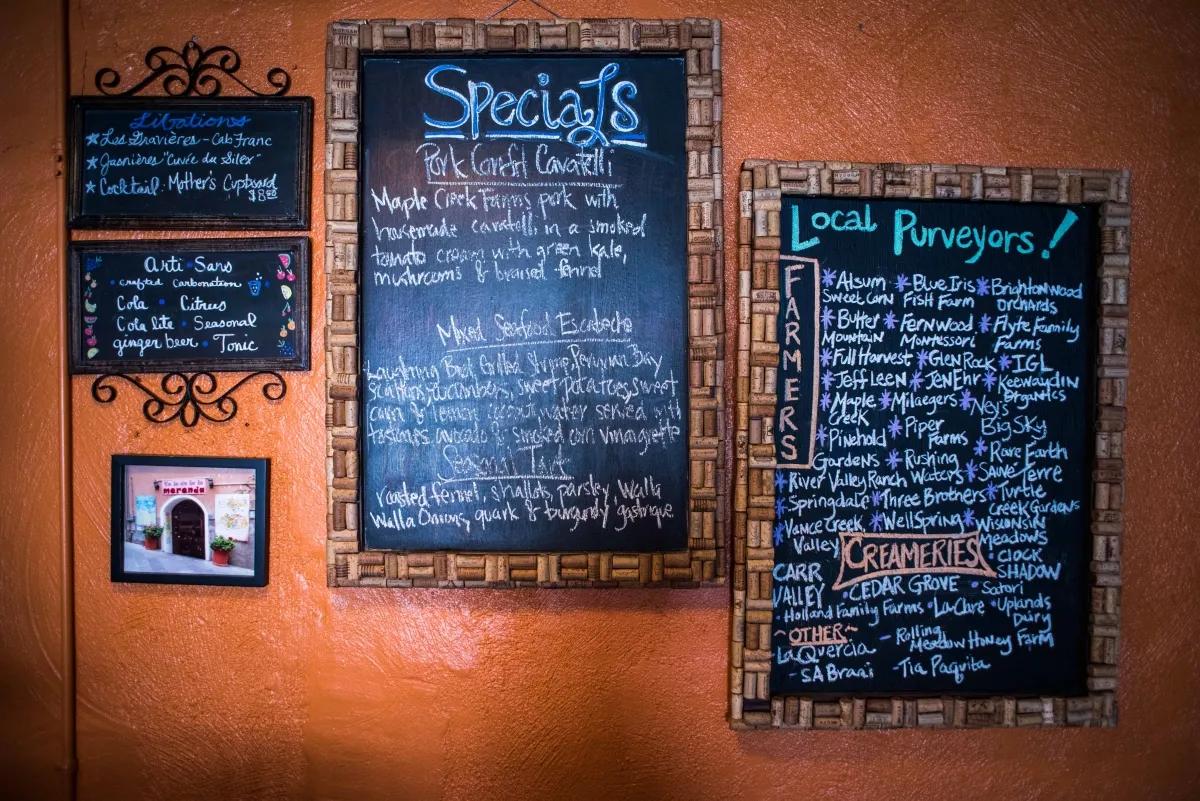 Libations
Les Gravières - Cab Franc
Jasnières "Cuvée du Silex"
Cocktail: Mother's Cupboard
$8.00
Arti·Sans
crafted Carbonation
Cola · Citrus
Cola lite · Seasonal
ginger beer · Tonic
meranda
Specials
Pork Confit Cavatelli
Maple Creek Farms pork with
housemade cavatelli in a smoked
tomato cream with green kale,
mushrooms & braised fennel
Mixed Seafood Escabeche
Laughing Bird Grilled Shrimp, Peruvian Bay
Scallops, cucumbers, sweet potatoes, sweet
corn & lemon coconut water served with
tostones, avocado & smoked corn vinaigrette
Seasonal Tart
roasted fennel, shallots, parsley, Walla
Walla Onions, quark & burgundy gastrique
Local Purveyors!
FARMERS
Alsum * Blue Iris * Brightonwood
Sweet Corn Fish Farm Orchards
Butter * Fernwood * Flyte Family
Mountain Montessori Farms
Full Harvest * Glen Rock * IGL
Jeff Leen * JenEhr * Keewaydin
Organics
Maple * Milaegers * Ney's
Creek Big Sky
Pinehold * Piper
Farms
Gardens * Rushing * Rare Earth
River Valley Ranch Waters * Sauve Terre
Springdale * Three Brothers * Turtle
Creek Gardens
Vance Creek * WellSpring * Wisconsin
Valley Meadows
CREAMERIES
· CLOCK
SHADOW
CARR
VALLEY · CEDAR GROVE · Satori
· Holland Family Farms · LaClare · Uplands
Dairy
~OTHER~
La Quercia - Rolling
Meadow Honey Farm
- SA Braai - Tia Paquita